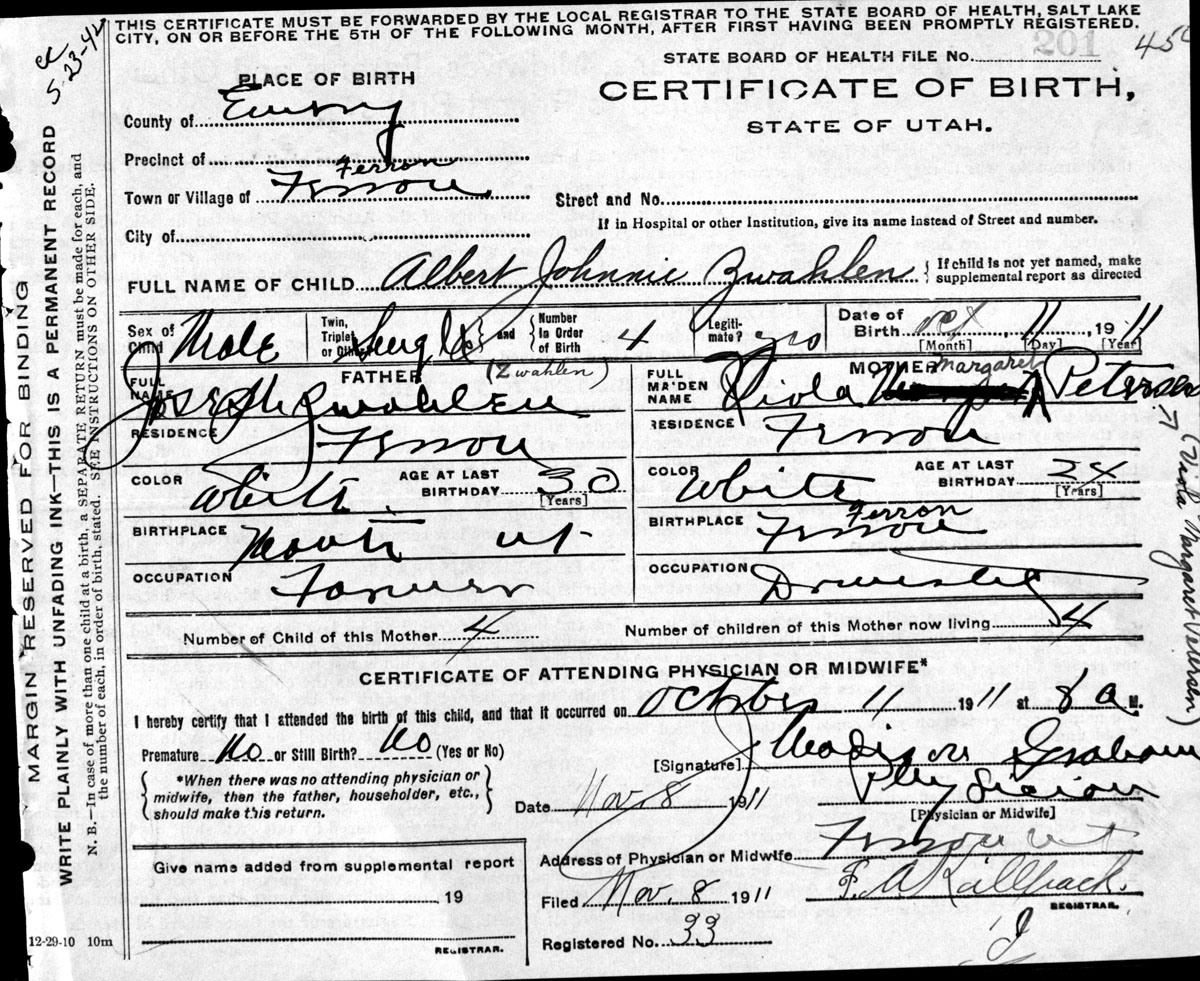 THIS CERTIFICATE MUST BE FORWARDED BY THE LOCAL REGISTRAR TO THE STATE BOARD OF HEALTH, SALT LAKE
CITY, ON OR BEFORE THE 5TH OF THE FOLLOWING MONTH, AFTER FIRST HAVING BEEN PROMPTLY REGISTERED.
5-23-42
201
STATE BOARD OF HEALTH FILE No.
PLACE OF BIRTH
CERTIFICATE OF BIRTH,
STATE OF UTAH.
County of Emery
Precinct of
Ferron
Town or Village of Ferron
Street and No.
If in Hospital or other Institution, give its name instead of Street and number.
City of
FULL NAME OF CHILD Albert Johnnie Zwahlen { If child is not yet named, make supplemental report as directed
Sex of Child Male Twin, Triplet or Other Single } and { Number in Order of Birth 4 Legitimate? yes Date of Birth Oct [Month] 11 [Day] 1911 [Year]
FATHER (Zwahlen) MOTHER Margaret
FULL NAME Joseph Zwahlen FULL MAIDEN NAME Viola Petersen
RESIDENCE Ferron RESIDENCE Ferron
COLOR White AGE AT LAST BIRTHDAY 30 [Years] COLOR White AGE AT LAST BIRTHDAY 24 [Years]
BIRTHPLACE ut BIRTHPLACE Ferron Ferron
OCCUPATION Farmer OCCUPATION Domestic
Number of Child of this Mother 4 Number of children of this Mother now living 4
CERTIFICATE OF ATTENDING PHYSICIAN OR MIDWIFE*
I hereby certify that I attended the birth of this child, and that it occurred on October 11 1911 at 8 a M.
Premature No or Still Birth? No (Yes or No)
[Signature] Madison Graham
{ *When there was no attending physician or midwife, then the father, householder, etc., should make this return. }
Date Nov. 8 1911 Physician
[Physician or Midwife]
Address of Physician or Midwife Ferron ut
Give name added from supplemental report
19
REGISTRAR.
Filed Nov. 8 1911
REGISTRAR.
Registered No. 33
12-29-10 10m
MARGIN RESERVED FOR BINDING
WRITE PLAINLY WITH UNFADING INK—THIS IS A PERMANENT RECORD
N. B.—In case of more than one child at a birth, a SEPARATE RETURN must be made for each, and
the number of each, in order of birth, stated. SEE INSTRUCTIONS ON OTHER SIDE.
(Viola Margaret